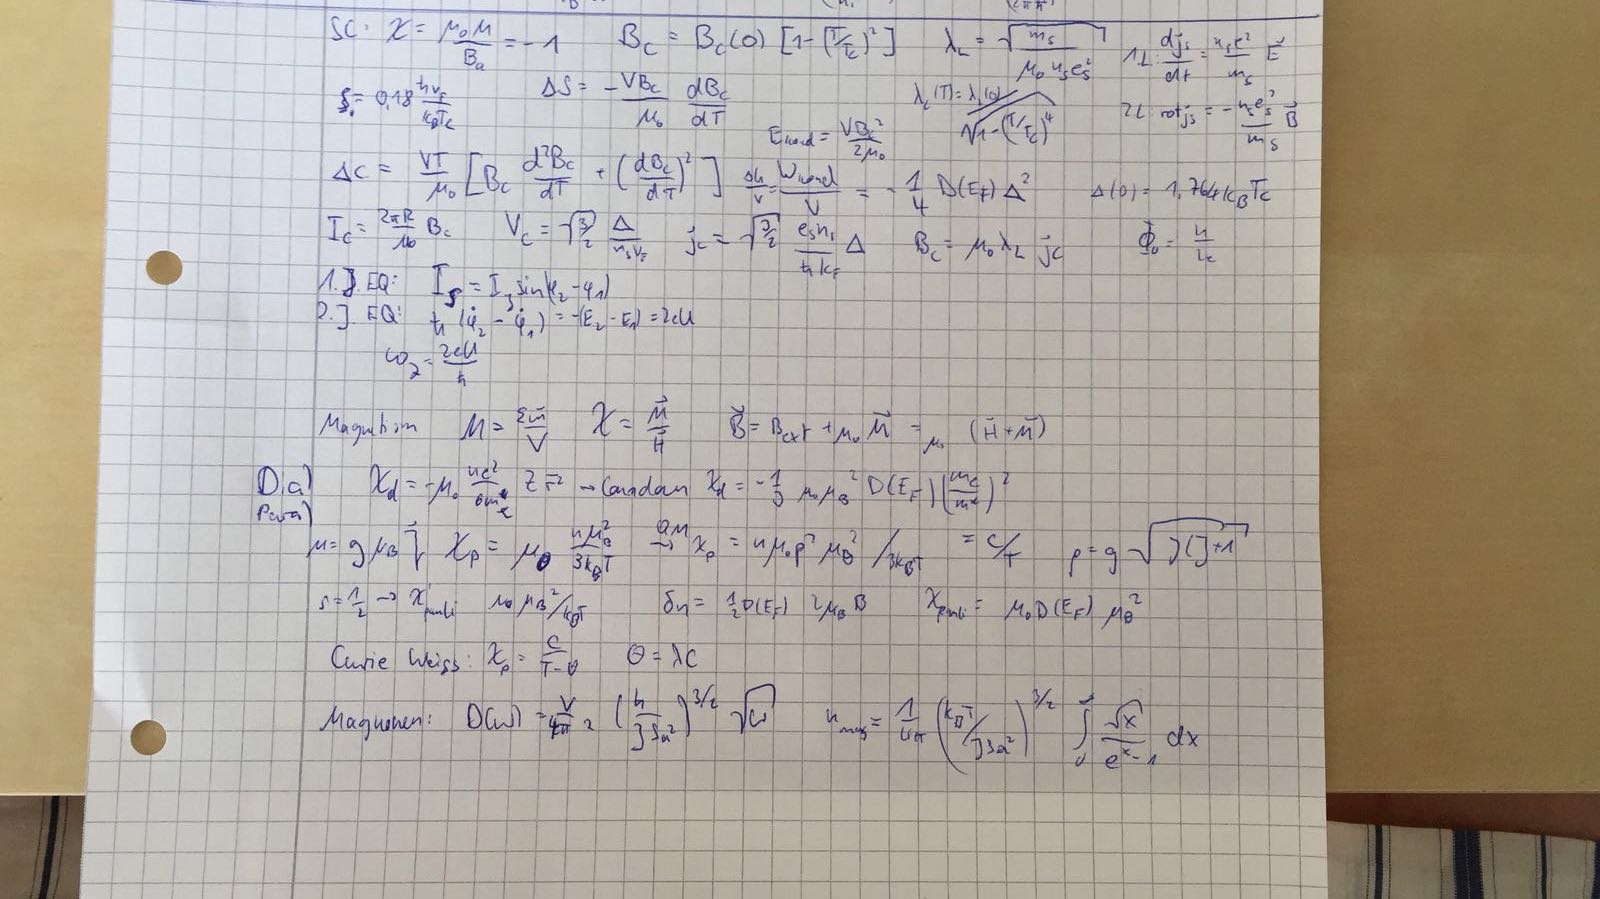 SC: χ = μ₀M/B_a = -1   B_c = B_c(0) [1-(T/T_c)²]   λ_L = √(m_s/(μ₀ n_s e_s²))   1L: dj_s/dt = n_s e_s²/m_s E⃗
ξ₀ = 0,18 ħv_F/(k_B T_c)   ΔS = -VB_c/μ₀ dB_c/dT   E_kond = VB_c²/2μ₀   λ_L(T) = λ_L(0)/√(1-(T/T_c)⁴)   2L: rot j_s = - n_s e_s²/m_s B⃗
ΔC = VT/μ₀ [B_c d²B_c/dT + (dB_c/dT)²]   W_kond/V = -1/4 D(E_F) Δ²   Δ(0) = 1,764 k_B T_c
I_c = 2πR/μ₀ B_c   V_c = √3/2 Δ/   j_c = √3/2 e_s n_s/(ħ k_F) Δ   B_c = μ₀ λ_L j_c   Φ₀ = h/2e
1. J. EQ: I_s = I_J sin(φ₂-φ₁)
2. J. EQ: ħ (φ̇₂ - φ̇₁) = -(E₂ - E₁) = 2eU
ω_J = 2eU/ħ
Magnetism   M = Σm⃗/V   χ = M⃗/H⃗   B⃗ = B_ext + μ₀ M⃗ = μ₀ (H⃗+M⃗)
Dia)   χ_d = -μ₀ ne²/6m_e* Z r̄² → Landau χ_d = -1/3 μ₀ μ_B² D(E_F) (m_e/m*)²
Para)
μ = g μ_B J⃗   χ_p = μ₀ nμ_B²/3k_BT   QM→ χ_p = n μ₀ p² μ_B²/3k_BT = C/T   p = g √(J(J+1))
s = 1/2 → χ_pauli   μ₀ μ_B²/k_BT   δn = 1/2 D(E_F) 2μ_B B   χ_pauli = μ₀ D(E_F) μ_B²
Curie Weiss: χ_p = C/(T-θ)   θ = λC
Magnonen: D(ω) = V/4π² (ħ/JSa²)^3/2 √ω   n_mag = (k_BT/JSa²)^3/2 ∫₀ √x/(eˣ-1) dx